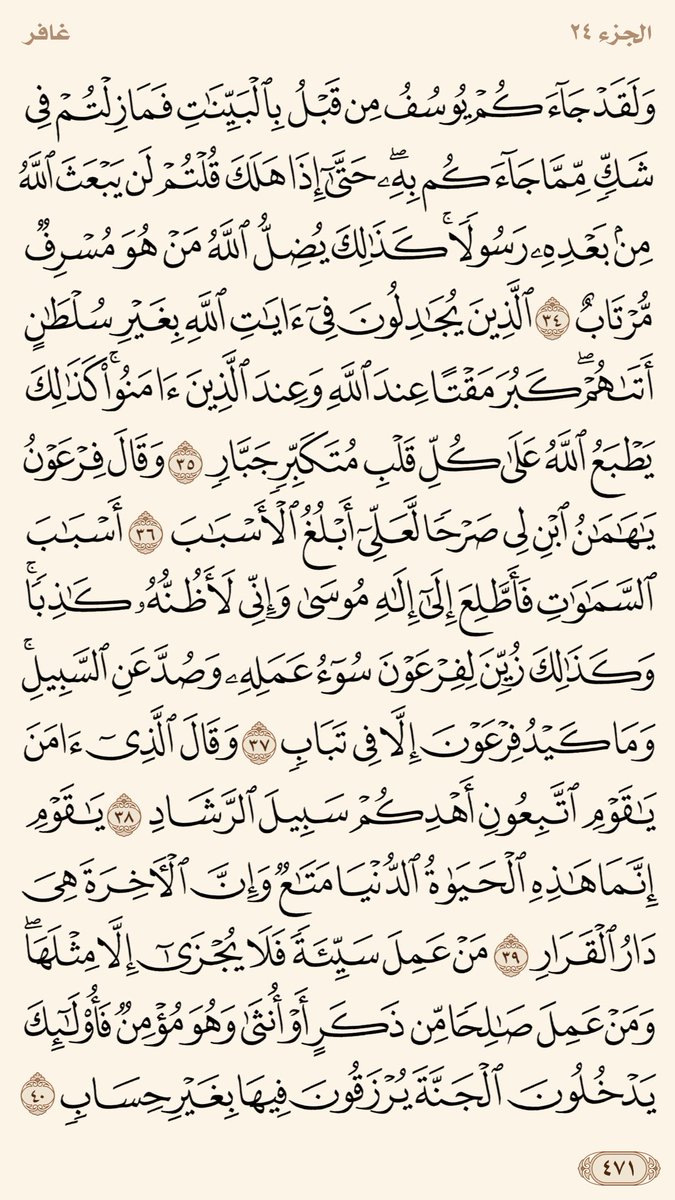 الجزء ٢٤
غافر
وَلَقَدۡ جَآءَكُمۡ يُوسُفُ مِن قَبۡلُ بِٱلۡبَيِّنَٰتِ فَمَا زِلۡتُمۡ فِي
شَكّٖ مِّمَّا جَآءَكُم بِهِۦۖ حَتَّىٰٓ إِذَا هَلَكَ قُلۡتُمۡ لَن يَبۡعَثَ ٱللَّهُ
مِنۢ بَعۡدِهِۦ رَسُولٗاۚ كَذَٰلِكَ يُضِلُّ ٱللَّهُ مَنۡ هُوَ مُسۡرِفٞ
مُّرۡتَابٌ ٣٤ ٱلَّذِينَ يُجَٰدِلُونَ فِيٓ ءَايَٰتِ ٱللَّهِ بِغَيۡرِ سُلۡطَٰنٍ
أَتَىٰهُمۡۖ كَبُرَ مَقۡتًا عِندَ ٱللَّهِ وَعِندَ ٱلَّذِينَ ءَامَنُواْۚ كَذَٰلِكَ
يَطۡبَعُ ٱللَّهُ عَلَىٰ كُلِّ قَلۡبِ مُتَكَبِّرٖ جَبَّارٖ ٣٥ وَقَالَ فِرۡعَوۡنُ
يَٰهَٰمَٰنُ ٱبۡنِ لِي صَرۡحٗا لَّعَلِّيٓ أَبۡلُغُ ٱلۡأَسۡبَٰبَ ٣٦ أَسۡبَٰبَ
ٱلسَّمَٰوَٰتِ فَأَطَّلِعَ إِلَىٰٓ إِلَٰهِ مُوسَىٰ وَإِنِّي لَأَظُنُّهُۥ كَٰذِبٗاۚ
وَكَذَٰلِكَ زُيِّنَ لِفِرۡعَوۡنَ سُوٓءُ عَمَلِهِۦ وَصُدَّ عَنِ ٱلسَّبِيلِۚ
وَمَا كَيۡدُ فِرۡعَوۡنَ إِلَّا فِي تَبَابٖ ٣٧ وَقَالَ ٱلَّذِيٓ ءَامَنَ
يَٰقَوۡمِ ٱتَّبِعُونِ أَهۡدِكُمۡ سَبِيلَ ٱلرَّشَادِ ٣٨ يَٰقَوۡمِ
إِنَّمَا هَٰذِهِ ٱلۡحَيَوٰةُ ٱلدُّنۡيَا مَتَٰعٞ وَإِنَّ ٱلۡأٓخِرَةَ هِيَ
دَارُ ٱلۡقَرَارِ ٣٩ مَنۡ عَمِلَ سَيِّئَةٗ فَلَا يُجۡزَىٰٓ إِلَّا مِثۡلَهَاۖ
وَمَنۡ عَمِلَ صَٰلِحٗا مِّن ذَكَرٍ أَوۡ أُنثَىٰ وَهُوَ مُؤۡمِنٞ فَأُوْلَٰٓئِكَ
يَدۡخُلُونَ ٱلۡجَنَّةَ يُرۡزَقُونَ فِيهَا بِغَيۡرِ حِسَابٖ ٤٠
٤٧١